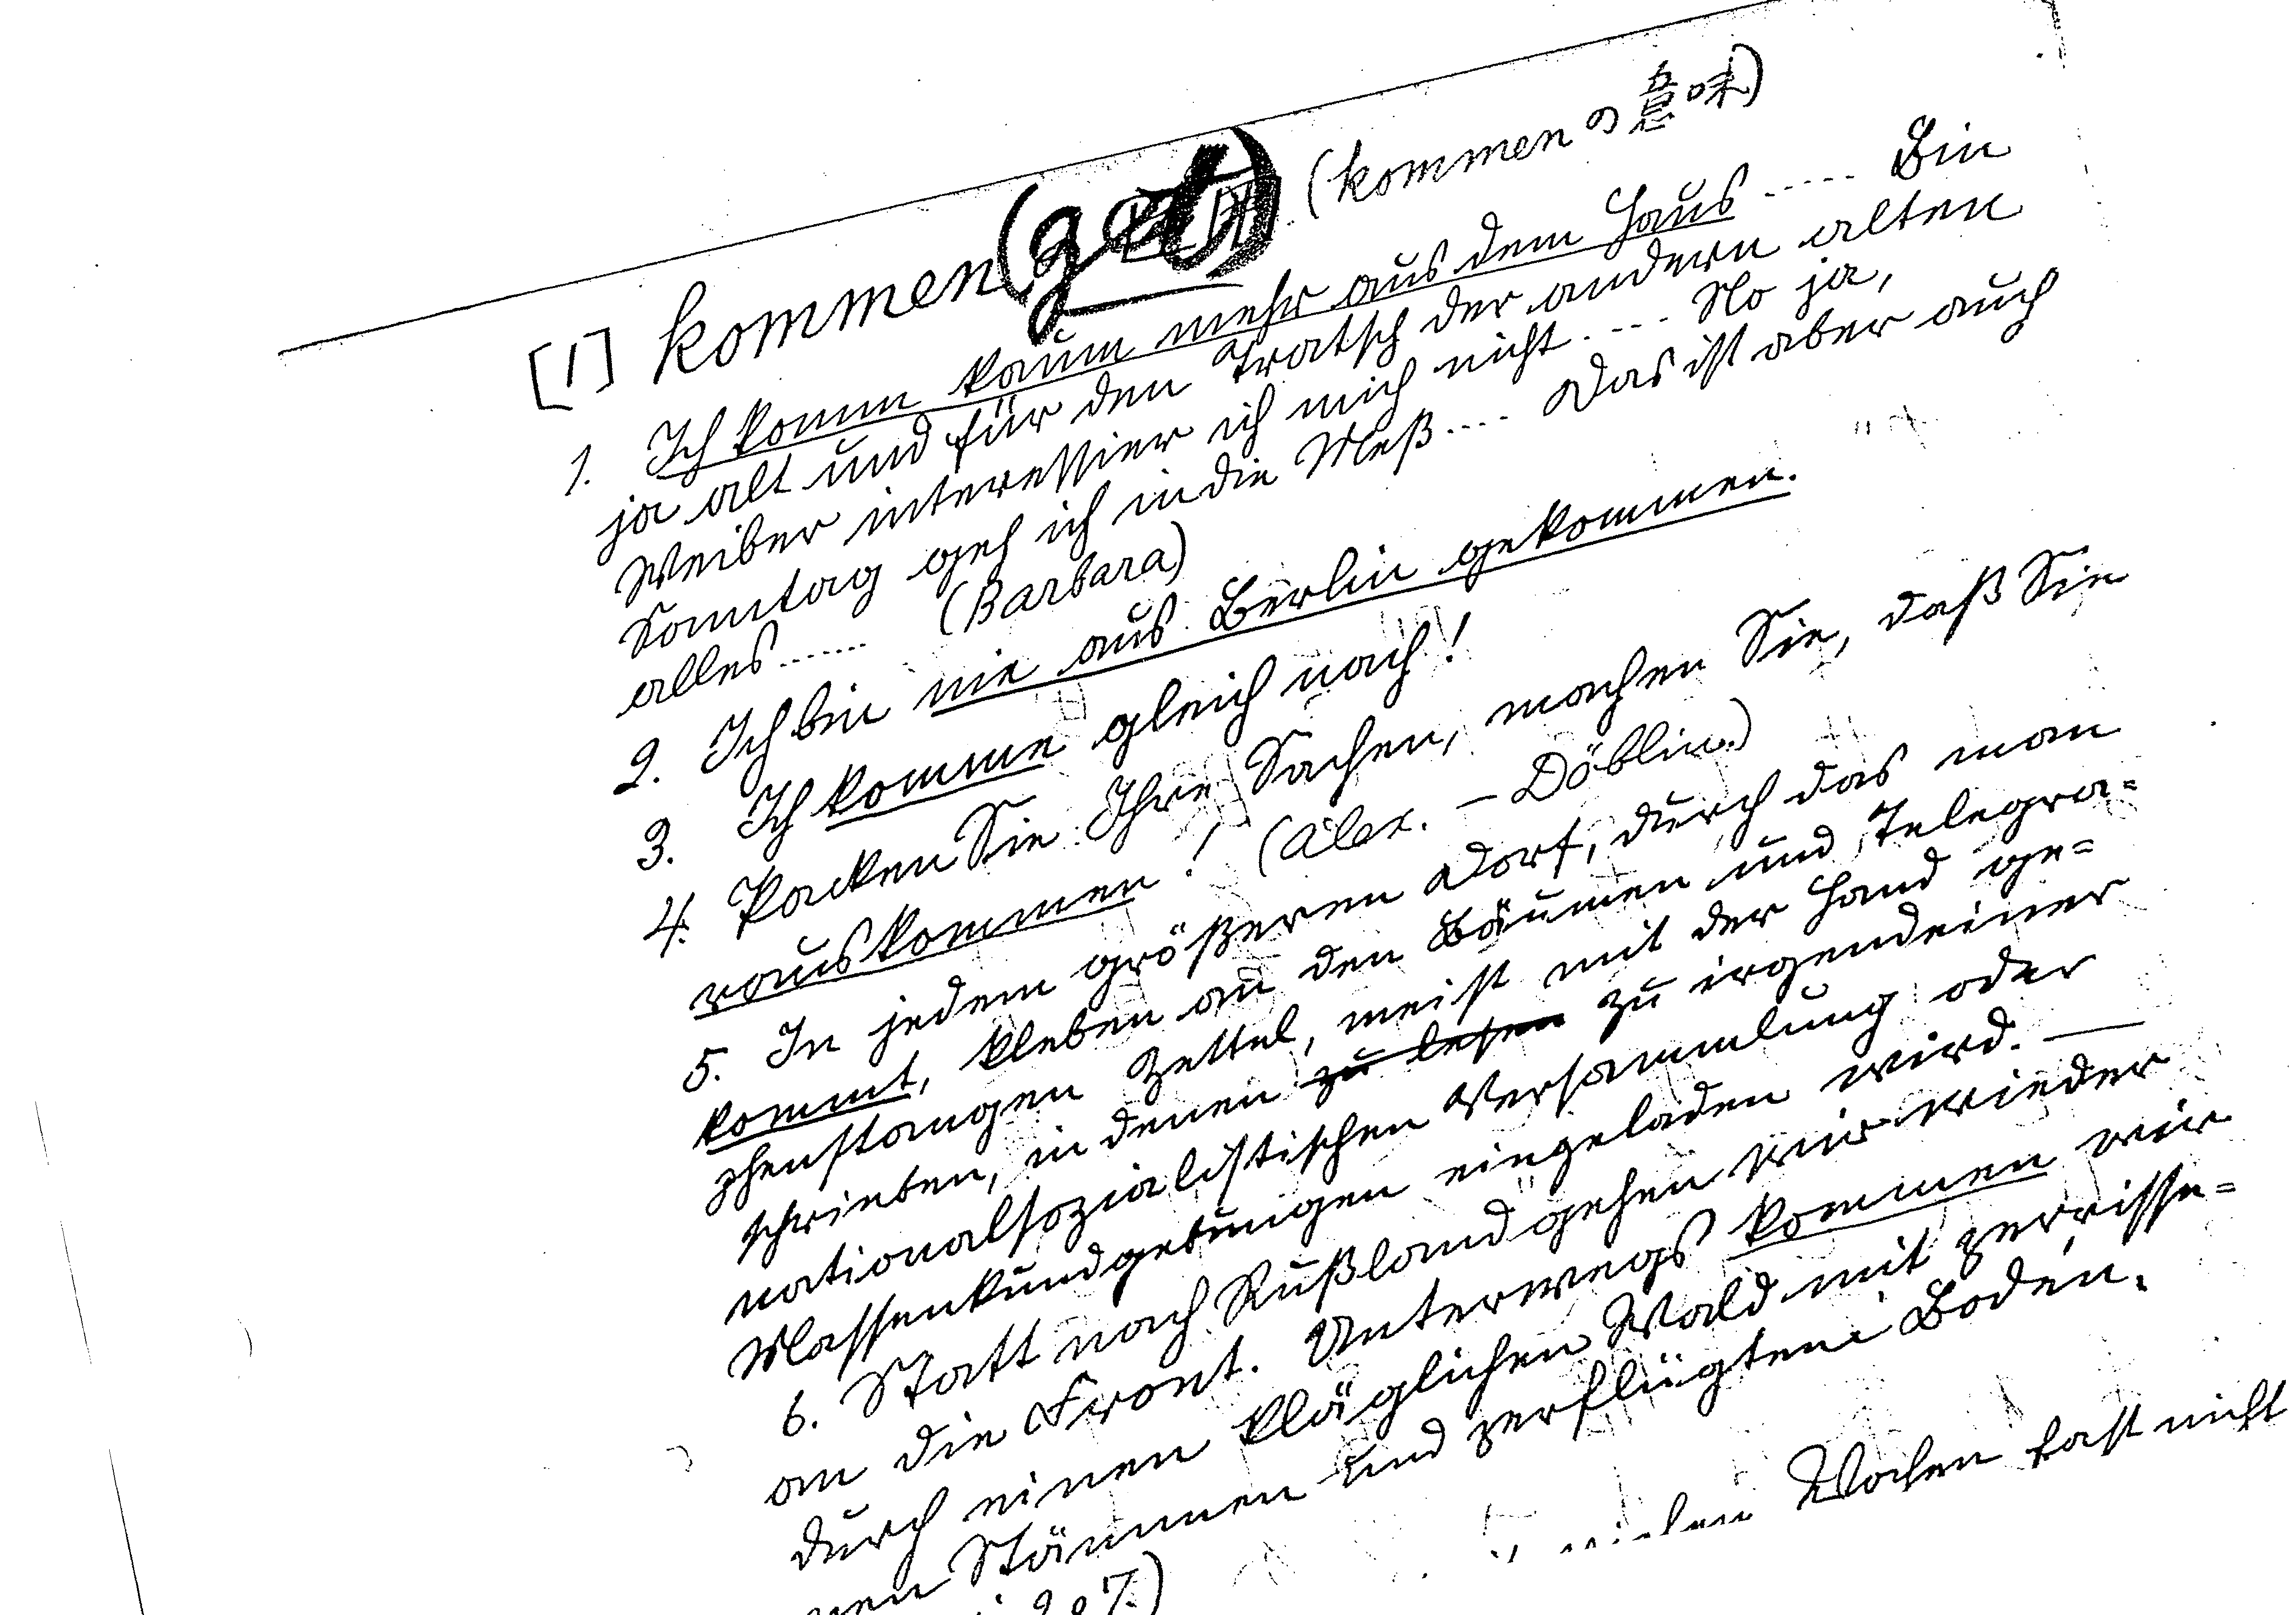 [1] kommen (get) (kommen の意味)
1. Ich komm kaum mehr aus dem Haus ..... Bin
ja alt und für den Tratsch der andern alten
Weiber interessier ich mich nicht .... No ja,
Sonntag geh ich in die Meß .... Das ist aber auch
alles ...... (Barbara)
2. Ich bin nie aus Berlin gekommen.
3. Ich komme gleich nach!
4. Packen Sie Ihre Sachen, machen Sie, daß Sie
rauskommen! (Alex. – Döblin.)
5. In jedem größeren Dorf, durch das man
kommt, kleben an den Bäumen und Telegra=
phenstangen Zettel, meist mit der Hand ge=
schrieben, in denen zu lesen zu irgendeiner
nationalsozialistischen Versammlung oder
Massenkundgebungen eingeladen wird. —
6. Statt nach Rußland gehen wir wieder
an die Front. Unterwegs kommen wir
durch einen kläglichen Wald mit zerrisse=
nen Stämmen und zerpflügtem Boden.
Wochen fast nicht
207.)